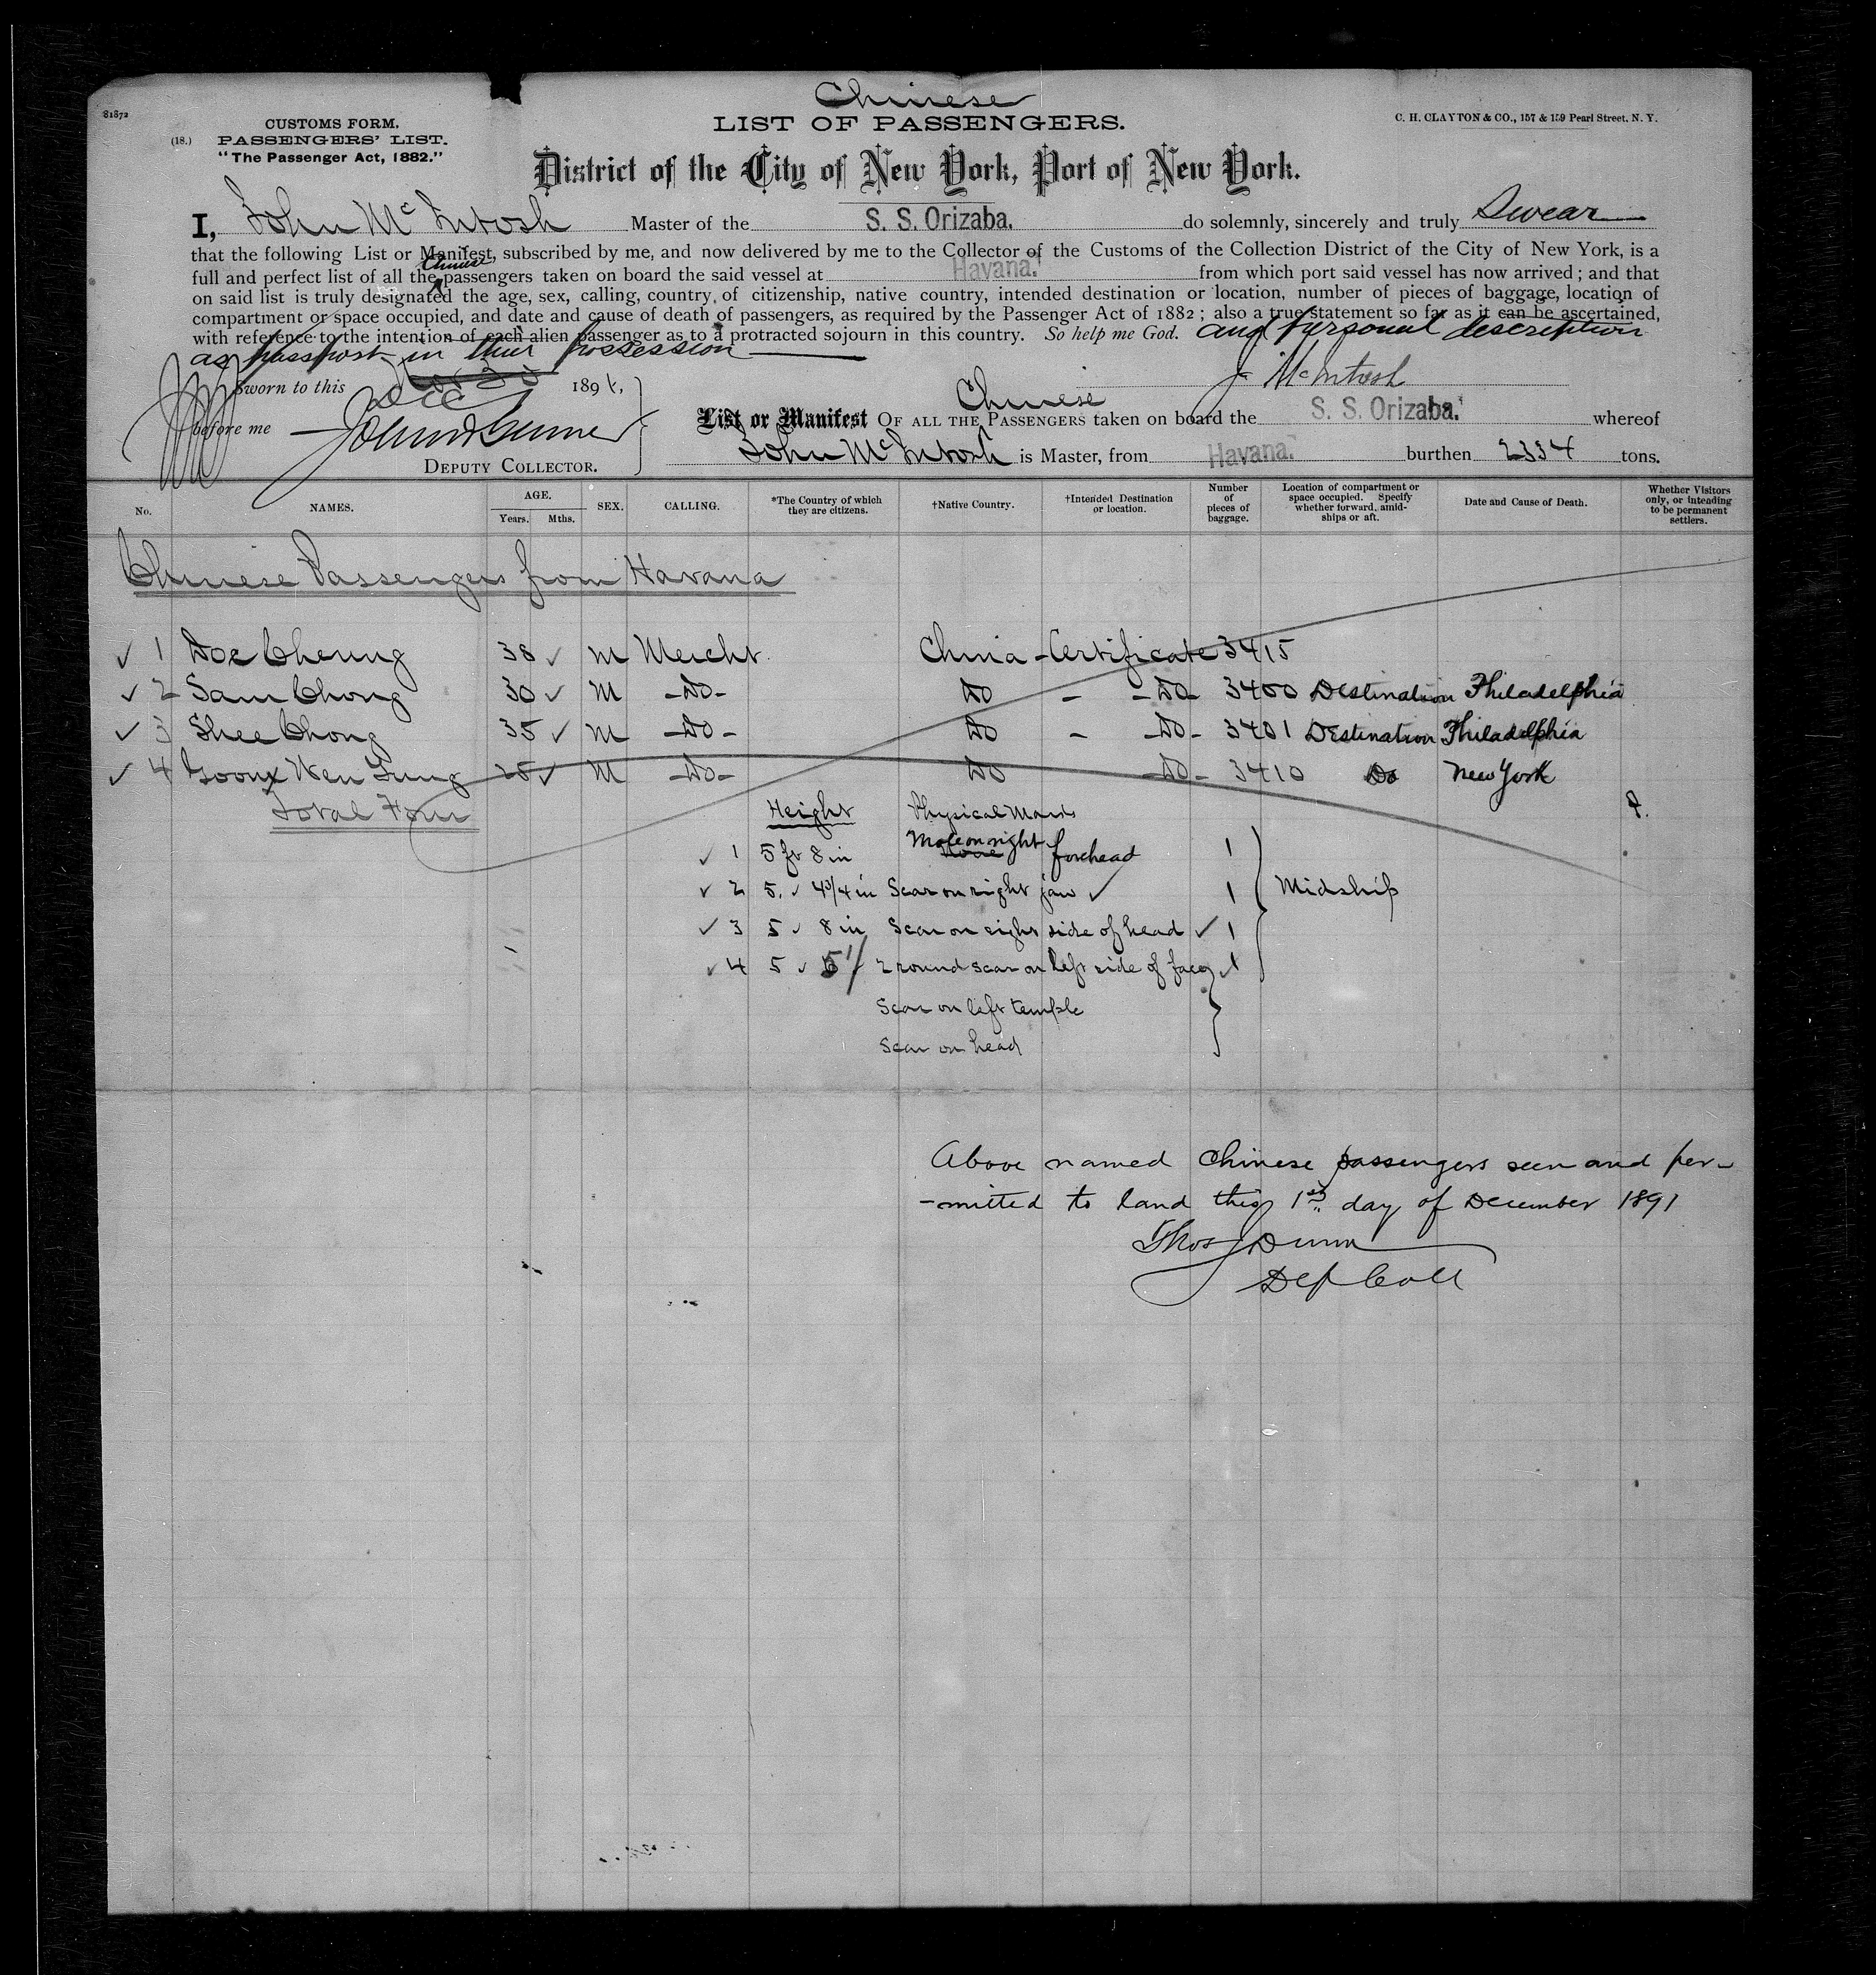 81872
(18.)
CUSTOMS FORM.
PASSENGERS' LIST.
"The Passenger Act, 1882."
Chinese
LIST OF PASSENGERS.
C. H. CLAYTON & CO., 157 & 159 Pearl Street, N. Y.
District of the City of New York, Port of New York.
I, John McIntosh Master of the S. S. Orizaba. do solemnly, sincerely and truly Swear
that the following List or Manifest, subscribed by me, and now delivered by me to the Collector of the Customs of the Collection District of the City of New York, is a
full and perfect list of all the Chinese passengers taken on board the said vessel at Havana. from which port said vessel has now arrived; and that
on said list is truly designated the age, sex, calling, country of citizenship, native country, intended destination or location, number of pieces of baggage, location of
compartment or space occupied, and date and cause of death of passengers, as required by the Passenger Act of 1882; also a true statement so far as it can be ascertained,
with reference to the intention of each alien passenger as to a protracted sojourn in this country. So help me God. and personal description
as passport in their possession
Sworn to this Dec 1 1891,
J McIntosh
before me
DEPUTY COLLECTOR.
Chinese
List or Manifest OF ALL THE PASSENGERS taken on board the S. S. Orizaba. whereof
John McIntosh is Master, from Havana. burthen 2334 tons.
No. NAMES. AGE. Years. Mths. SEX. CALLING. *The Country of which they are citizens. †Native Country. †Intended Destination or location. Number of pieces of baggage. Location of compartment or space occupied. Specify whether forward, amidships or aft. Date and Cause of Death. Whether Visitors only, or intending to be permanent settlers.
Chinese Passengers from Havana
✓ 1 Doe Cheung 38 ✓ M Mercht. China - Certificate 3415
✓ 2 Sam Chong 30 ✓ M -Do- Do - -Do- 3400 Destination Philadelphia
✓ 3 Shee Chong 35 ✓ M -Do- Do - -Do- 3401 Destination Philadelphia
✓ 4 Wen Lung 25 ✓ M -Do- Do -Do- 3410 Do New York
Total Four
Height Physical Marks
✓ 1 5 ft 8 in Mole on right forehead 1
✓ 2 5 ✓ 4 3/4 in Scar on right jaw ✓ 1 Midship
✓ 3 5 ✓ 8 in Scar on right side of head ✓ 1
✓ 4 5 ✓ 5 2 round scar on left side of face ✓ 1
Scar on left temple
Scar on head
Above named Chinese passengers seen and per-
-mitted to land this 1st day of December 1891
Thos J Dunn
Dep Coll